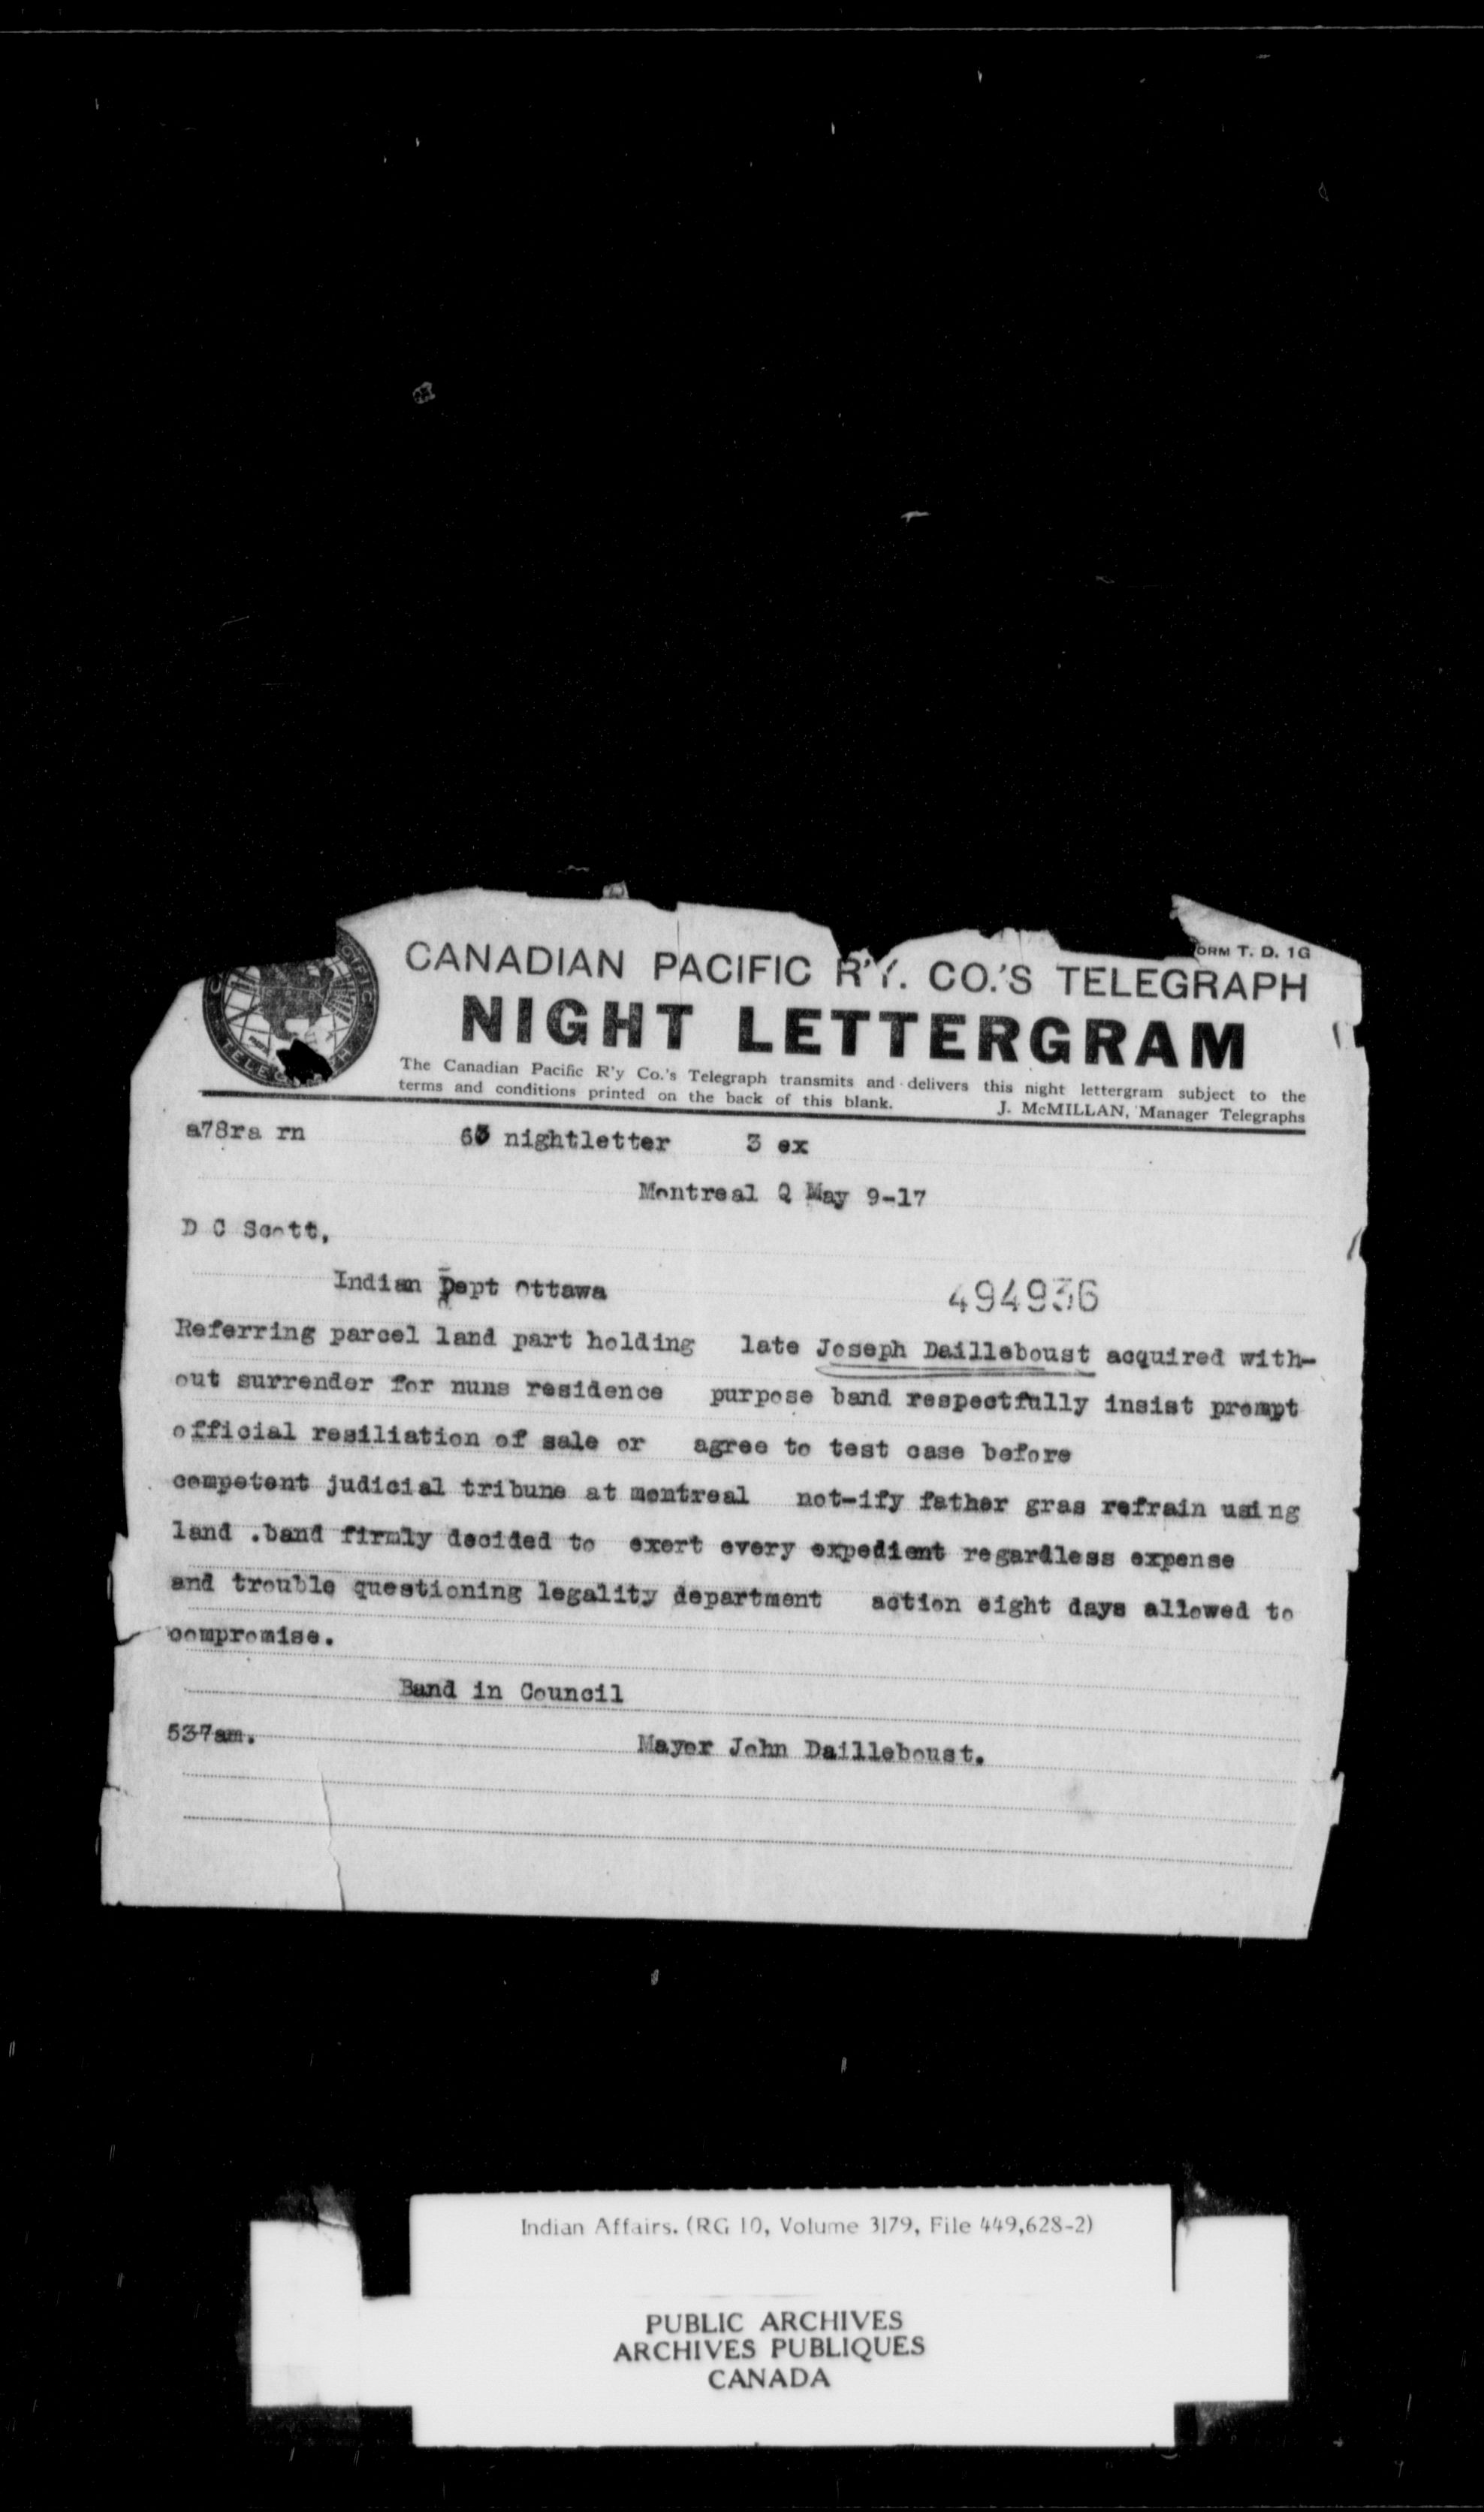 ORM T. D. 1G
CANADIAN PACIFIC R'Y. CO.'S TELEGRAPH
NIGHT LETTERGRAM
The Canadian Pacific R'y Co.'s Telegraph transmits and delivers this night lettergram subject to the
terms and conditions printed on the back of this blank. J. McMILLAN, Manager Telegraphs
a78ra rn 63 nightletter 3 ex
Montreal Q May 9-17
D C Scott,
Indian Dept Ottawa
494936
Referring parcel land part holding late Joseph Dailleboust acquired with-
out surrender for nuns residence purpose band respectfully insist prompt
official resiliation of sale or agree to test case before
competent judicial tribune at montreal not-ify father gras refrain using
land .band firmly decided to exert every expedient regardless expense
and trouble questioning legality department action eight days allowed to
compromise.
Band in Council
537am.
Mayor John Dailleboust.
Indian Affairs. (RG 10, Volume 3179, File 449,628-2)
PUBLIC ARCHIVES
ARCHIVES PUBLIQUES
CANADA